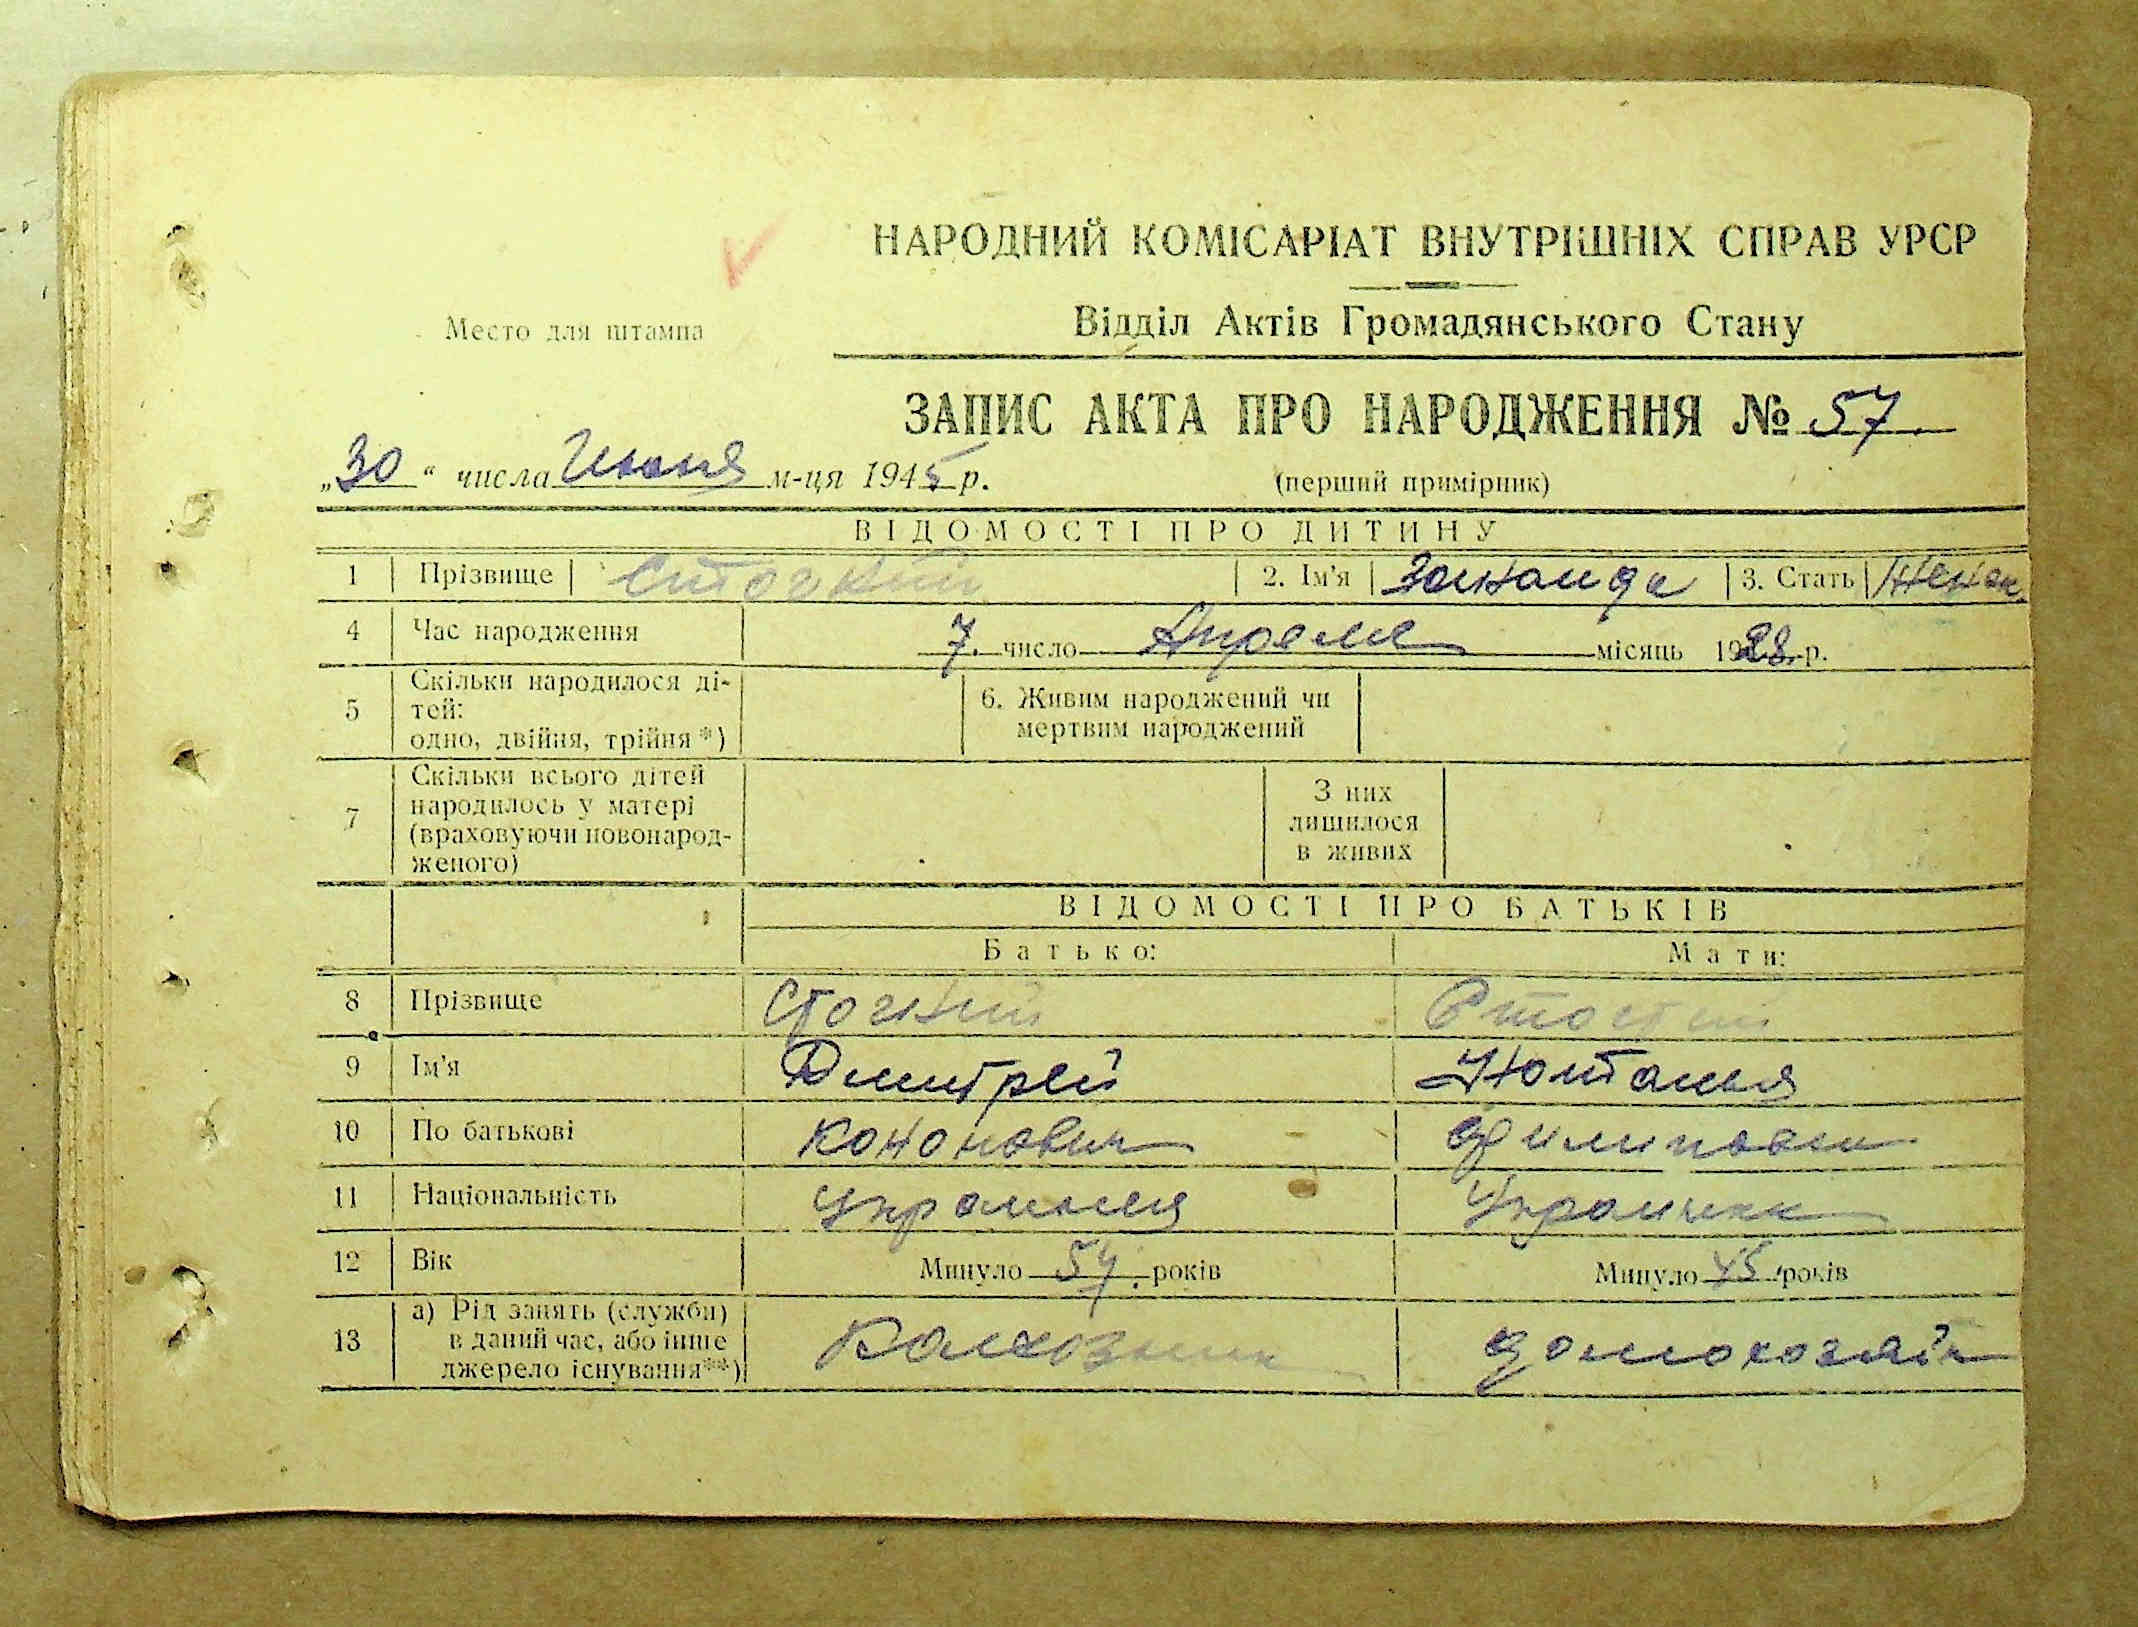 НАРОДНИЙ КОМІСАРІАТ ВНУТРІШНІХ СПРАВ УРСР
Место для штампа
Відділ Актів Громадянського Стану
ЗАПИС АКТА ПРО НАРОДЖЕННЯ № 57.
„30“ числа Июня м-ця 1945 р.
(перший примірник)
ВІДОМОСТІ ПРО ДИТИНУ
1 Прізвище 2. Ім'я Зинаида 3. Стать Женск.
4 Час народження 7. число Апреля місяць 1928. р.
5 Скільки народилося ді-
тей:
одно, двійня, трійня*)
6. Живим народжений чи
мертвим народжений
7 Скільки всього дітей
народилось у матері
(враховуючи новонарод-
женого)
З них
лишилося
в живих
ВІДОМОСТІ ПРО БАТЬКІВ
Батько: Мати:
8 Прізвище
9 Ім'я Дмитрей
10 По батькові Кононович Филиповн
11 Національність
12 Вік Минуло 57. років Минуло 45 років
13 а) Рід занять (служби)
в даний час, або інше
джерело існування**)
Колхозник домохозяйк